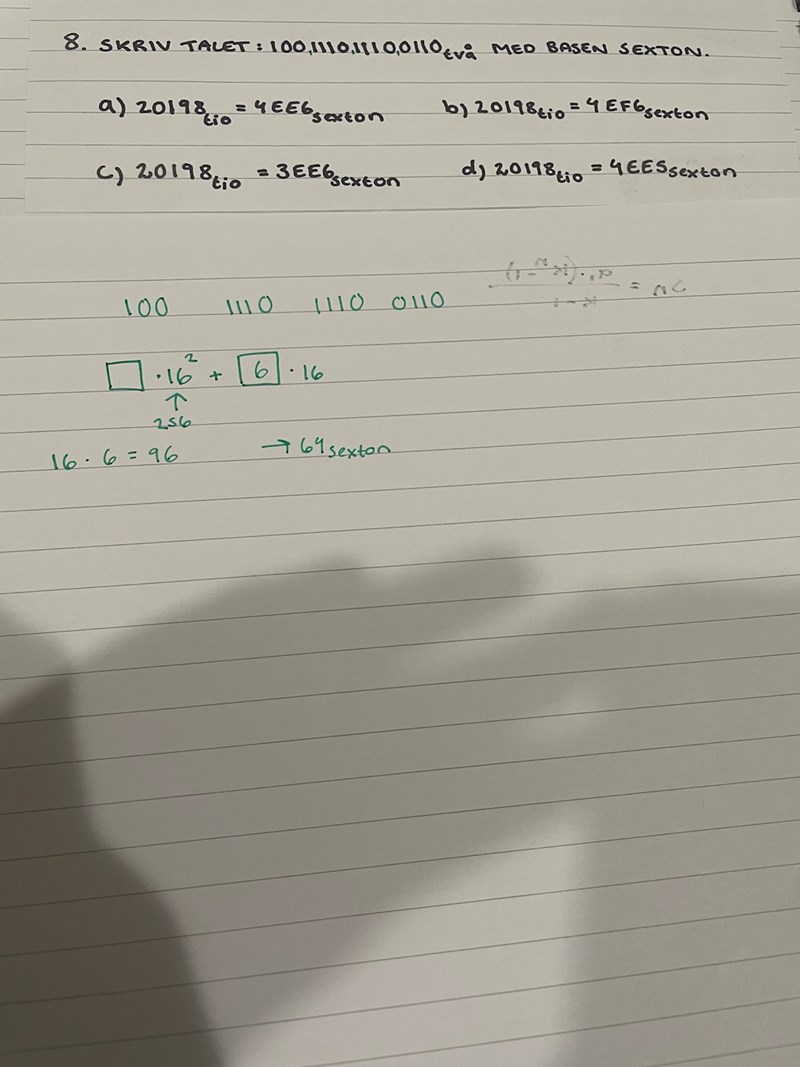 8. SKRIV TALET: 100,1110,1110,0110två MED BASEN SEXTON.
a) 20198tio = 4EE6sexton b) 20198tio = 4EF6sexton
c) 20198tio = 3EE6sexton d) 20198tio = 4EE5sexton
100 1110 1110 0110
□ · 16² + 6 · 16
↑
256
16 · 6 = 96 → 64sexton